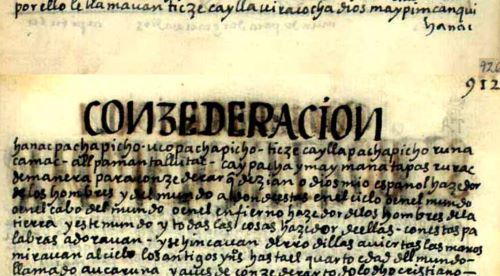 por ello le llamauan ticze caylla uiracocha dios maypim canqui
hanac
926
912
CONZEDERACION
hanacpachapicho - ucopachapicho - ticze cayllapachapicho runa
camac - allpamantallutac - caypacha ymaymanatapas rurac
de manera para conzederar q̃ dezian o dios mio español hazedor
de los hombres y del mundo adonde estas en el cielo o en el mundo
o en el cabo del mundo o en el enfierno hazedor de los hombres de la
tierra y este mundo y todas las cosas hazedor de ellas - con estas pa
labras adorauan - y se yncauan de rrodillas auiertas las manos
mirauan al cielo los antigos yns hasta el quarto edad del mundo
llamado aucaruna y aues de conzederar todo lo dho cristiano -